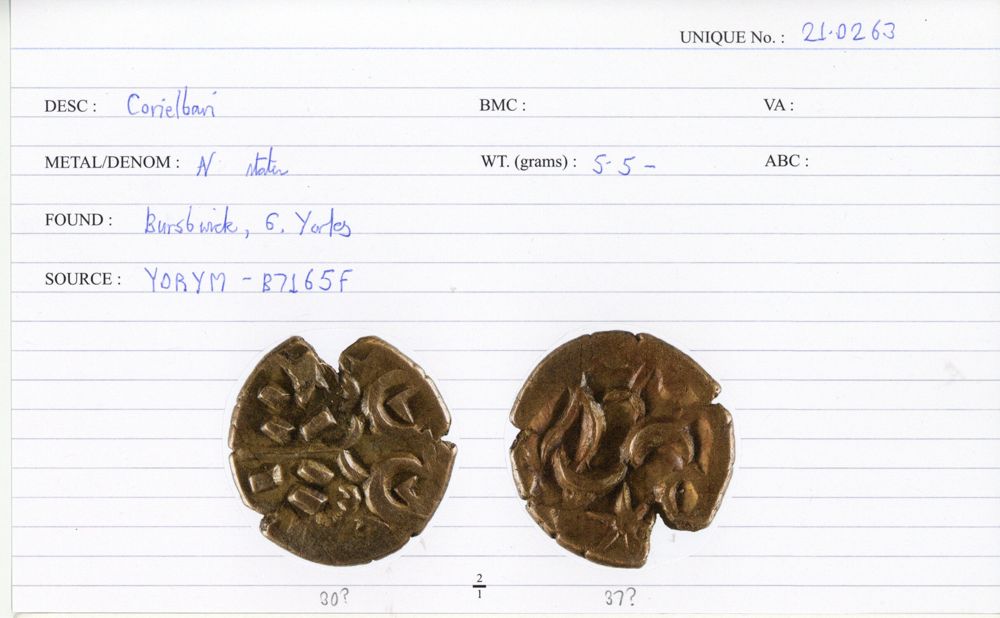 UNIQUE No. : 21.0263
DESC : Corielbavi BMC : VA :
METAL/DENOM : N stater WT. (grams) : 5.5 - ABC :
FOUND : Burstwick, E. Yorks
SOURCE : YORYM - B7165F
2
1
30? 37?